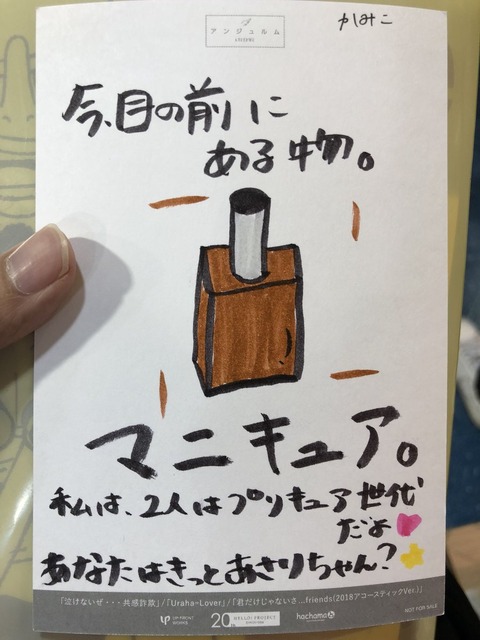 アンジュルム
かみこ
今、目の前に
ある物。
マニキュア。
私は、2人はプリキュア世代
だよ
あなたはきっとあさりちゃん?
「泣けないぜ・・・共感詐欺」/「Uraha=Lover」/「君だけじゃないさ...friends(2018アコースティックVer.)」
UP-FRONT WORKS
20th
HELLO! PROJECT
hachama
NOT FOR SALE